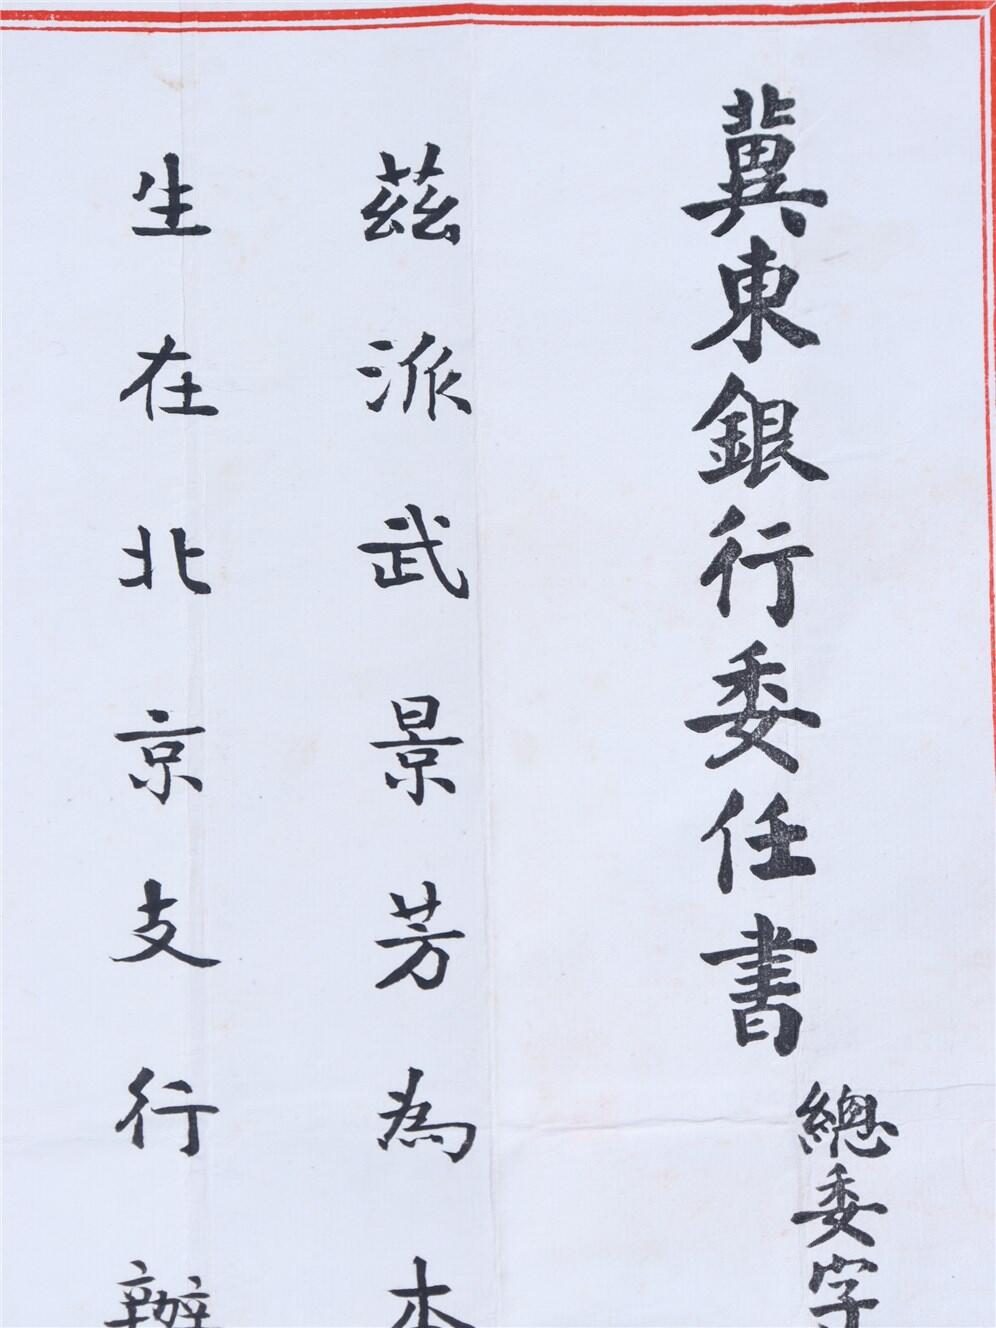 冀東銀行委任書
總委字
茲派武景芳為本
生在北京支行辦